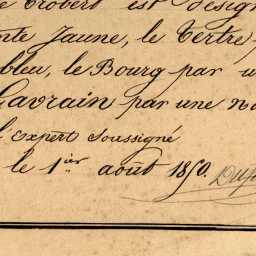 Robert est désign
nte Jaune, le Tertre
bleu, le Bourg par u
Lavrain par une n
l'Expert soussigné
le 1er août 1850.